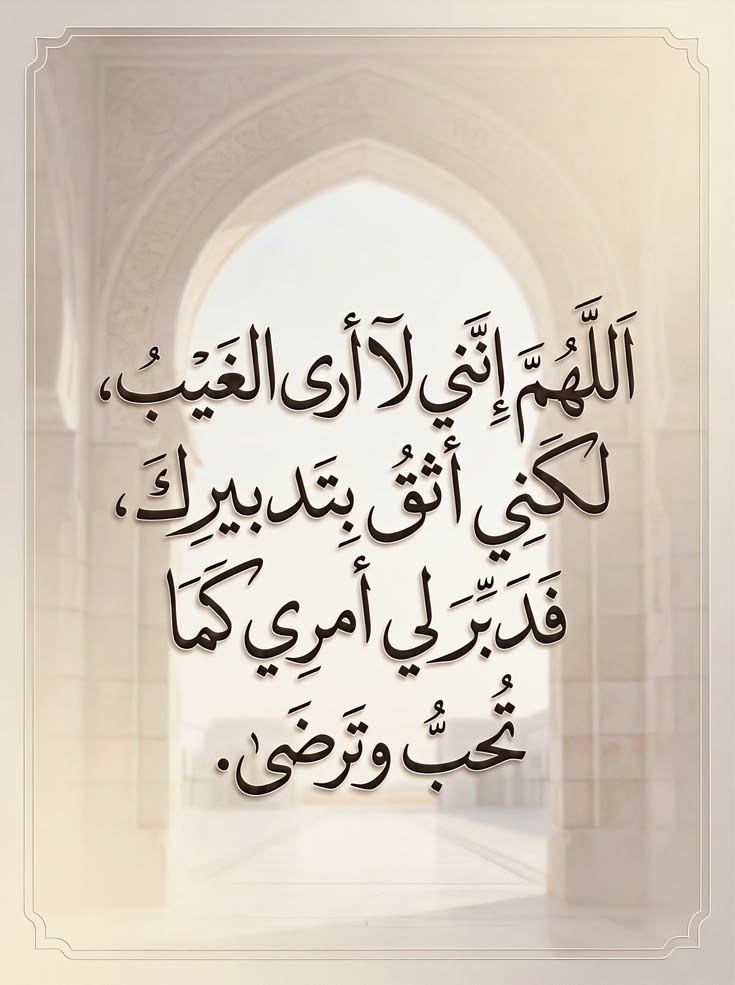 اَللَّهُمَّ إِنَّني لَآ أرى الغَيْبُ،
لكَنِي أثقُ بِتَدبيرِكَ،
فَدَبِّرَ لي أمرِي كَمَا
تُحبُّ وتَرضَىٰ.